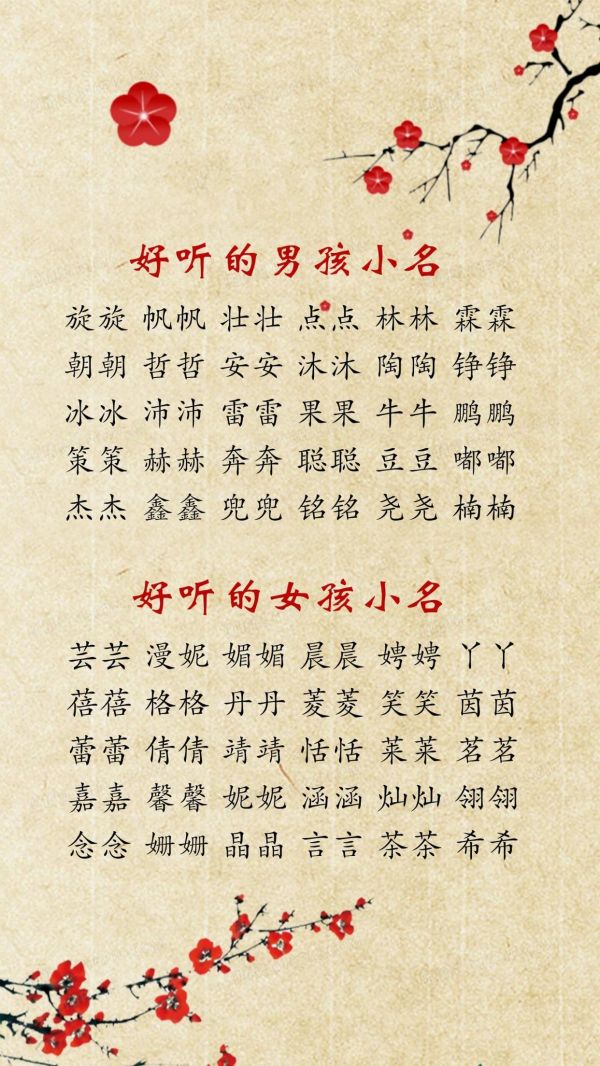 好听的男孩小名
旋旋 帆帆 壮壮 点点 林林 霖霖
朝朝 哲哲 安安 沐沐 陶陶 铮铮
冰冰 沛沛 雷雷 果果 牛牛 鹏鹏
策策 赫赫 奔奔 聪聪 豆豆 嘟嘟
杰杰 鑫鑫 兜兜 铭铭 尧尧 楠楠
好听的女孩小名
芸芸 漫妮 媚媚 晨晨 娉娉 丫丫
蓓蓓 格格 丹丹 菱菱 笑笑 茵茵
蕾蕾 倩倩 靖靖 恬恬 莱莱 茗茗
嘉嘉 馨馨 妮妮 涵涵 灿灿 翎翎
念念 姗姗 晶晶 言言 茶茶 希希